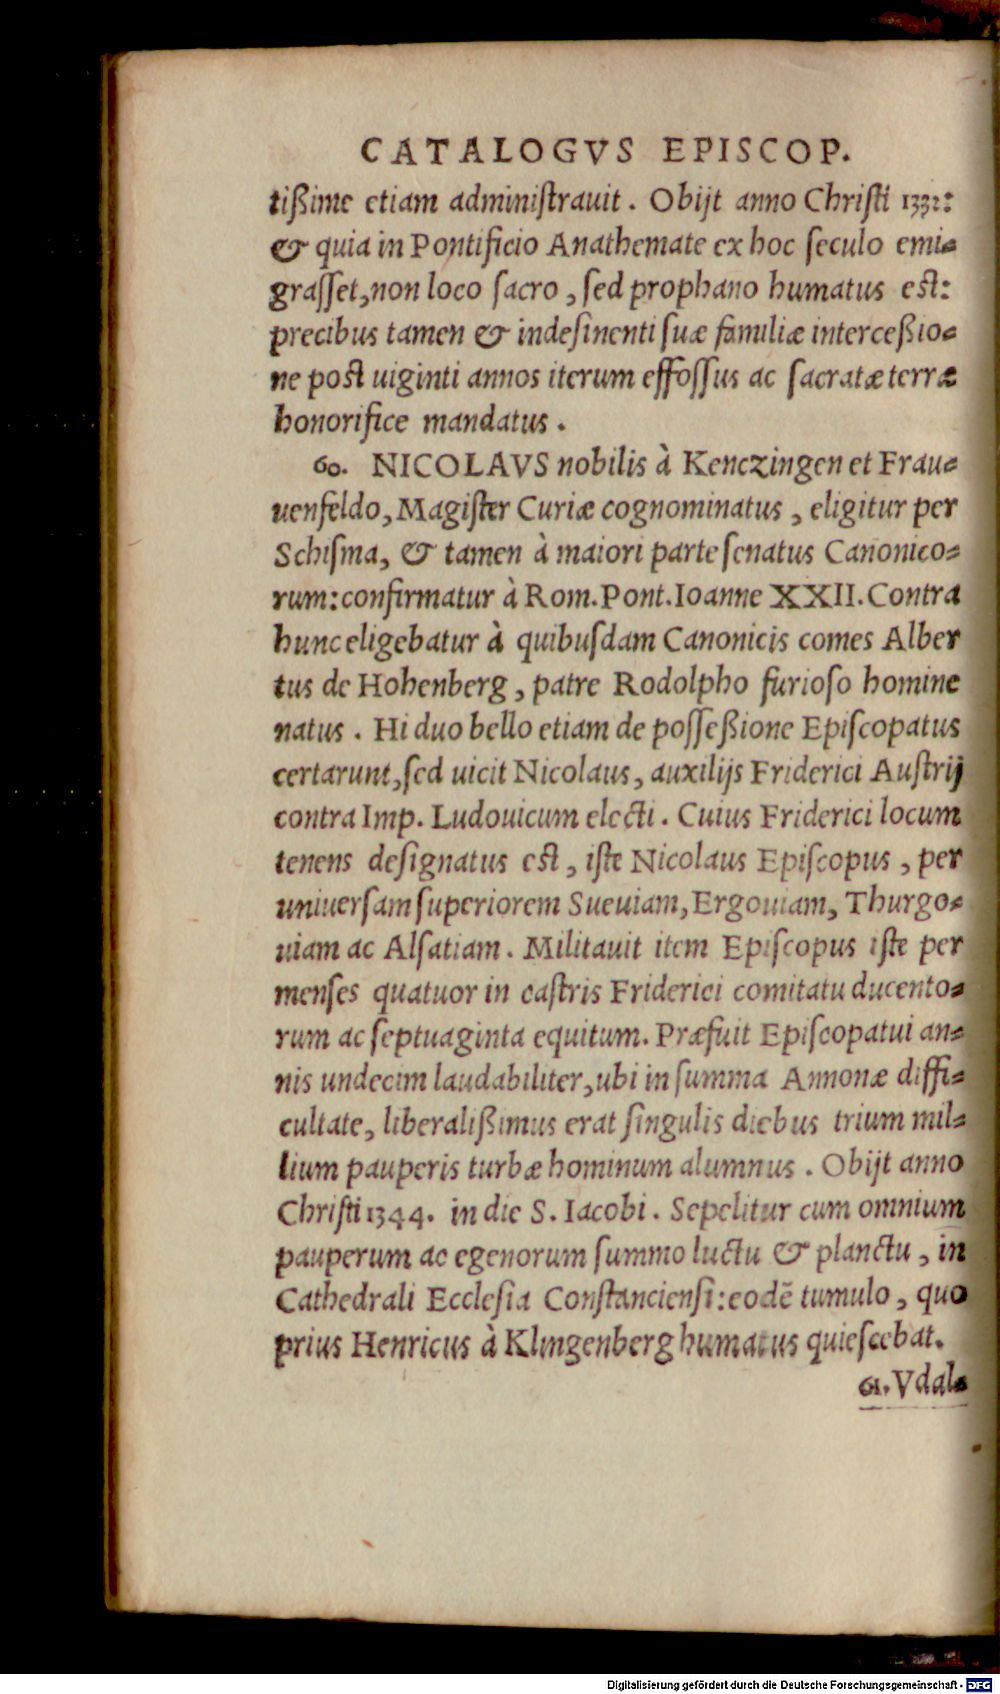 CATALOGVS EPISCOP.
tißime etiam administrauit. Obijt anno Christi 1332:
& quia in Pontificio Anathemate ex hoc seculo emi=
grasset, non loco sacro, sed prophano humatus est:
precibus tamen & indesinenti suæ familiæ interceßio=
ne post uiginti annos iterum effossus ac sacratæ terræ
honorifice mandatus.
60. NICOLAVS nobilis à Kenczingen et Frau=
uenfeldo, Magister Curiæ cognominatus, eligitur per
Schisma, & tamen à maiori parte senatus Canonico=
rum: confirmatur à Rom. Pont. Ioanne XXII. Contra
hunc eligebatur à quibusdam Canonicis comes Alber
tus de Hohenberg, patre Rodolpho furioso homine
natus. Hi duo bello etiam de posseßione Episcopatus
certarunt, sed uicit Nicolaus, auxilijs Friderici Austrij
contra Imp. Ludouicum electi. Cuius Friderici locum
tenens designatus est, iste Nicolaus Episcopus, per
uniuersam superiorem Sueuiam, Ergouiam, Thurgo=
uiam ac Alsatiam. Militauit item Episcopus iste per
menses quatuor in castris Friderici comitatu ducento=
rum ac septuaginta equitum. Præfuit Episcopatui an=
nis undecim laudabiliter, ubi in summa Annonæ diffi=
cultate, liberalißimus erat singulis diebus trium mil=
lium pauperis turbæ hominum alumnus. Obijt anno
Christi 1344. in die S. Iacobi. Sepelitur cum omnium
pauperum ac egenorum summo luctu & planctu, in
Cathedrali Ecclesia Constanciensi: eodē tumulo, quo
prius Henricus à Klingenberg humatus quiescebat.
61. Vdal=
Digitalisierung gefördert durch die Deutsche Forschungsgemeinschaft - DFG